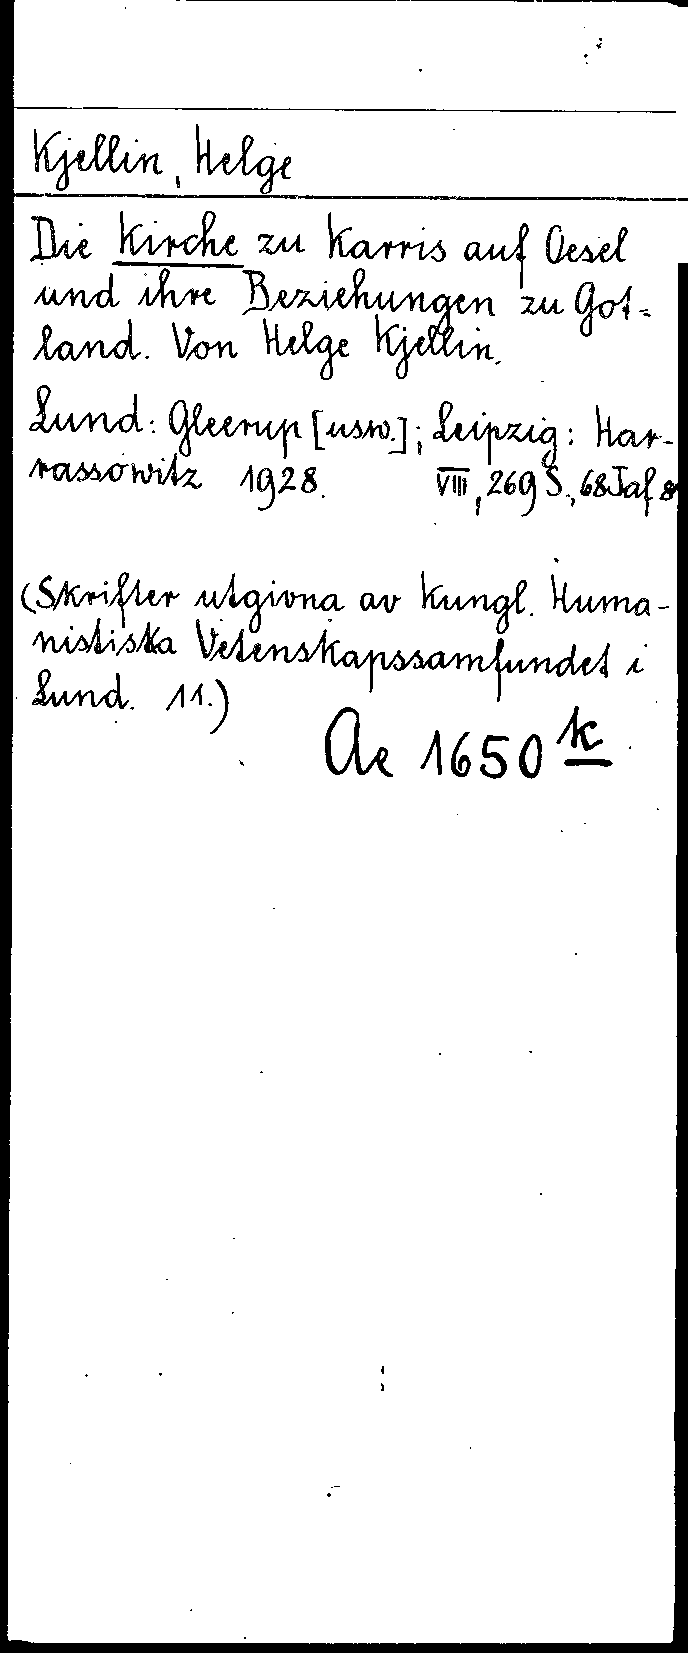 Kjellin, Helge
Die Kirche zu Karris auf Oesel
und ihre Beziehungen zu Got-
land. Von Helge Kjellin.
Lund: Gleerup [usw.]; Leipzig: Har-
rassowitz 1928. VIII, 269 S., 68 Taf 8
(Skrifter utgivna av Kungl. Huma-
nistiska Vetenskapssamfundet i
Lund. 11.)
Ae 1650 k